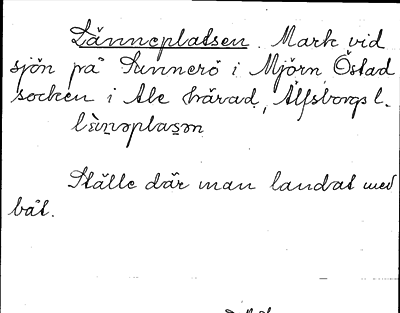 Länneplatsen. Mark vid
sjön på Sunnerö i Mjörn, Östad
socken i Ale härad, Älfsborgs l.
lä̀n̯əplasən
Ställe där man landat med
båt.